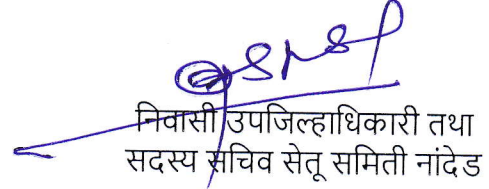 निवासी उपजिल्हाधिकारी तथा
सदस्य सचिव सेतू समिती नांदेड